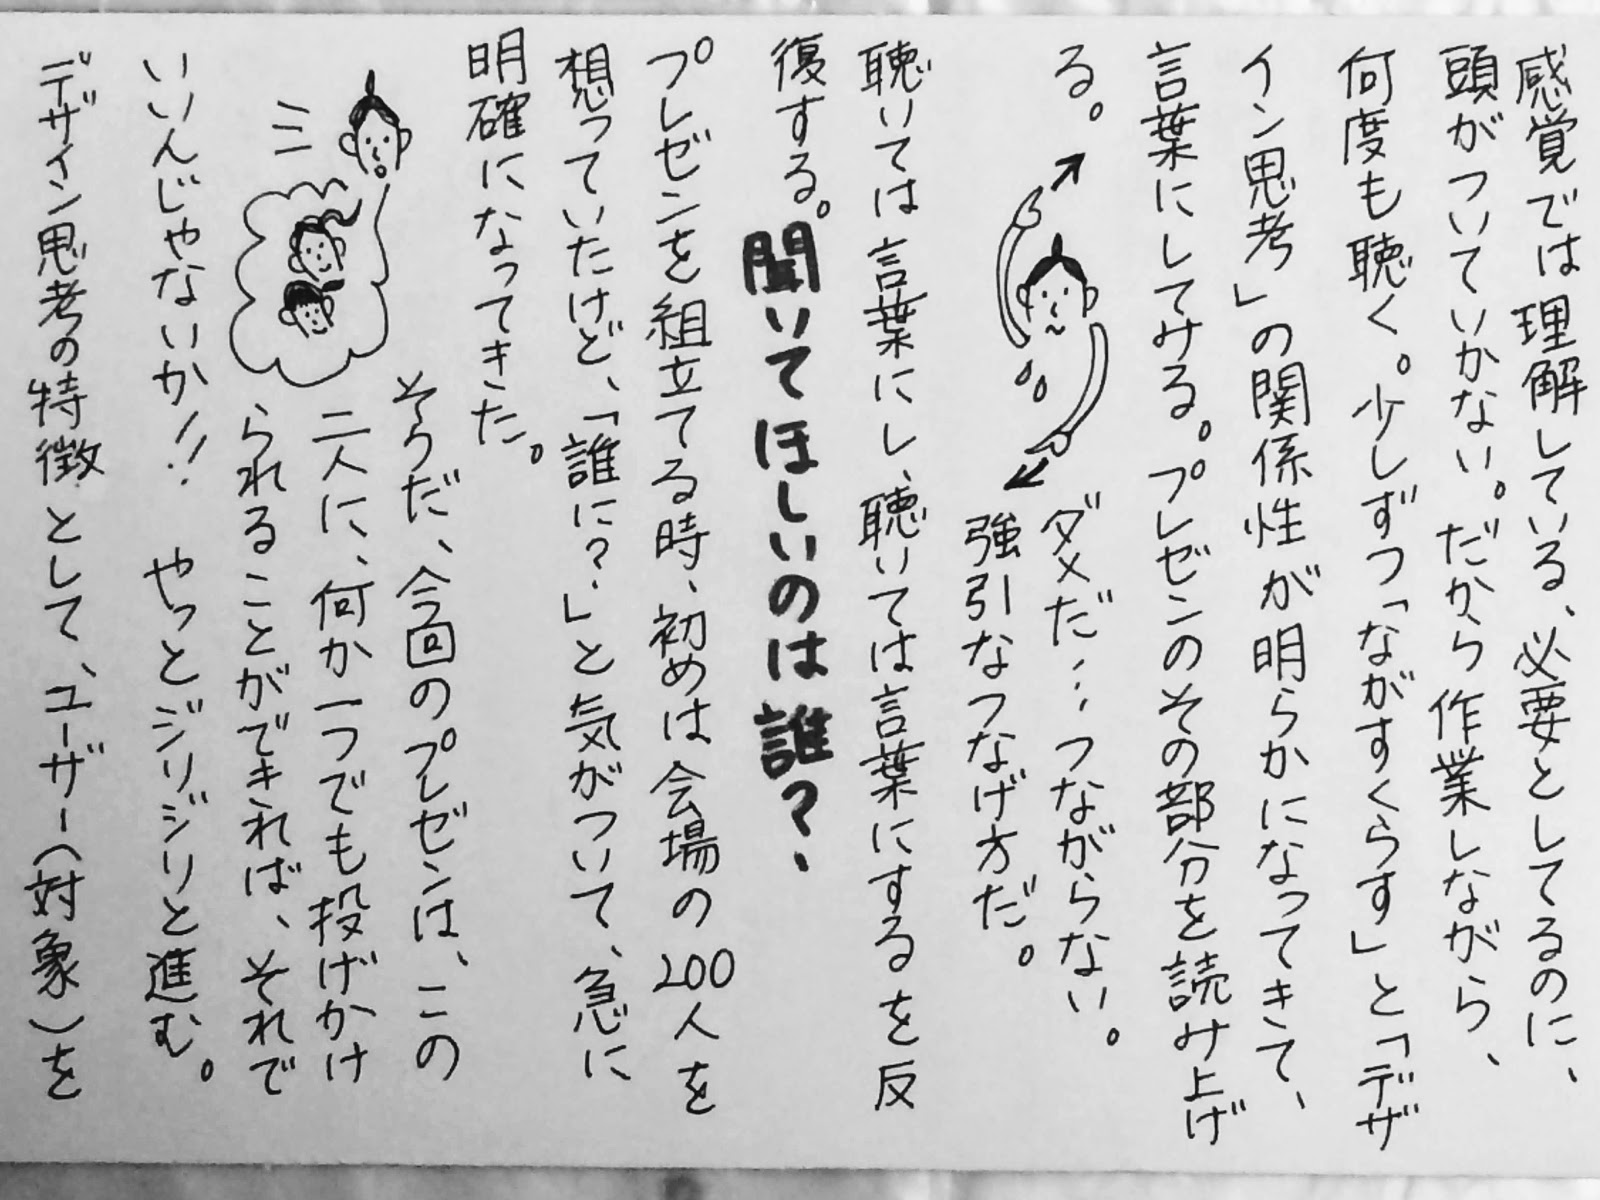 感覚では理解している、必要としてるのに、
頭がついていかない。だから作業しながら、
何度も聴く。少しずつ「ながすくらす」と「デザ
イン思考」の関係性が明らかになってきて、
言葉にしてみる。プレゼンのその部分を読み上げ
る。
ダメだ…つながらない。
強引なつなげ方だ。
聴いては言葉にし、聴いては言葉にするを反
復する。聞いてほしいのは誰?
プレゼンを組立てる時、初めは会場の200人を
想っていたけど、「誰に?」と気がついて、急に
明確になってきた。
そうだ、今回のプレゼンは、この
二人に、何か一つでも投げかけ
られることができれば、それで
いいんじゃないか!! やっとジリジリと進む。
デザイン思考の特徴として、ユーザー(対象)を